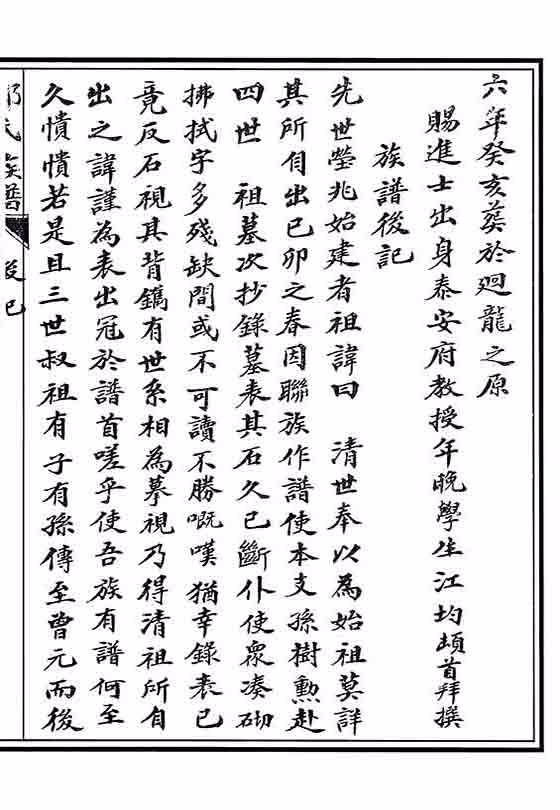 六年癸亥葬於迴龍之原
賜進士出身泰安府教授年晚學生江均頓首拜撰
族譜後記
先世塋兆始建者祖諱曰　清世奉以為始祖莫詳
其所自出已卯之春因聯族作譜使本支孫樹勳赴
四世　祖墓次抄錄墓表其石久已斷仆使眾湊砌
拂拭字多殘缺間或不可讀不勝嘅嘆猶幸錄表已
竟反石視其背鐫有世系相為摹視乃得清祖所自
出之諱謹為表出冠於譜首嗟乎使吾族有譜何至
久憒憒若是且三世叔祖有子有孫傳至曾元而後
氏族譜
後已